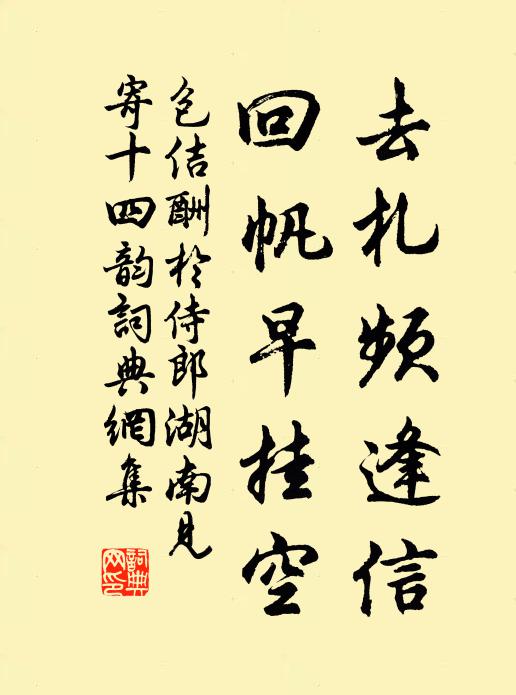 去札频逢信
回帆早挂空
包佶酬於侍郎湖南见
寄十四韵詞典網集
詞典
网印